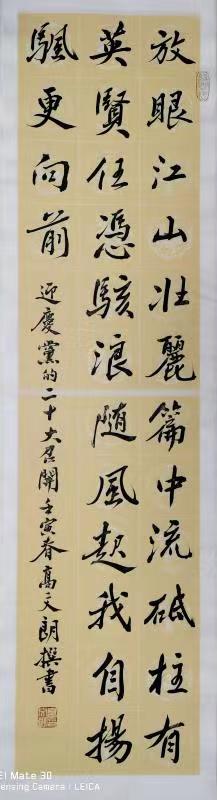 放眼江山壮麗篇中流砥柱有
英賢任憑駭浪随風起我自揚
颿更向前
迎慶黨的二十大召開壬寅春高文朗撰書
EI Mate 30
ensing Camera / LEICA